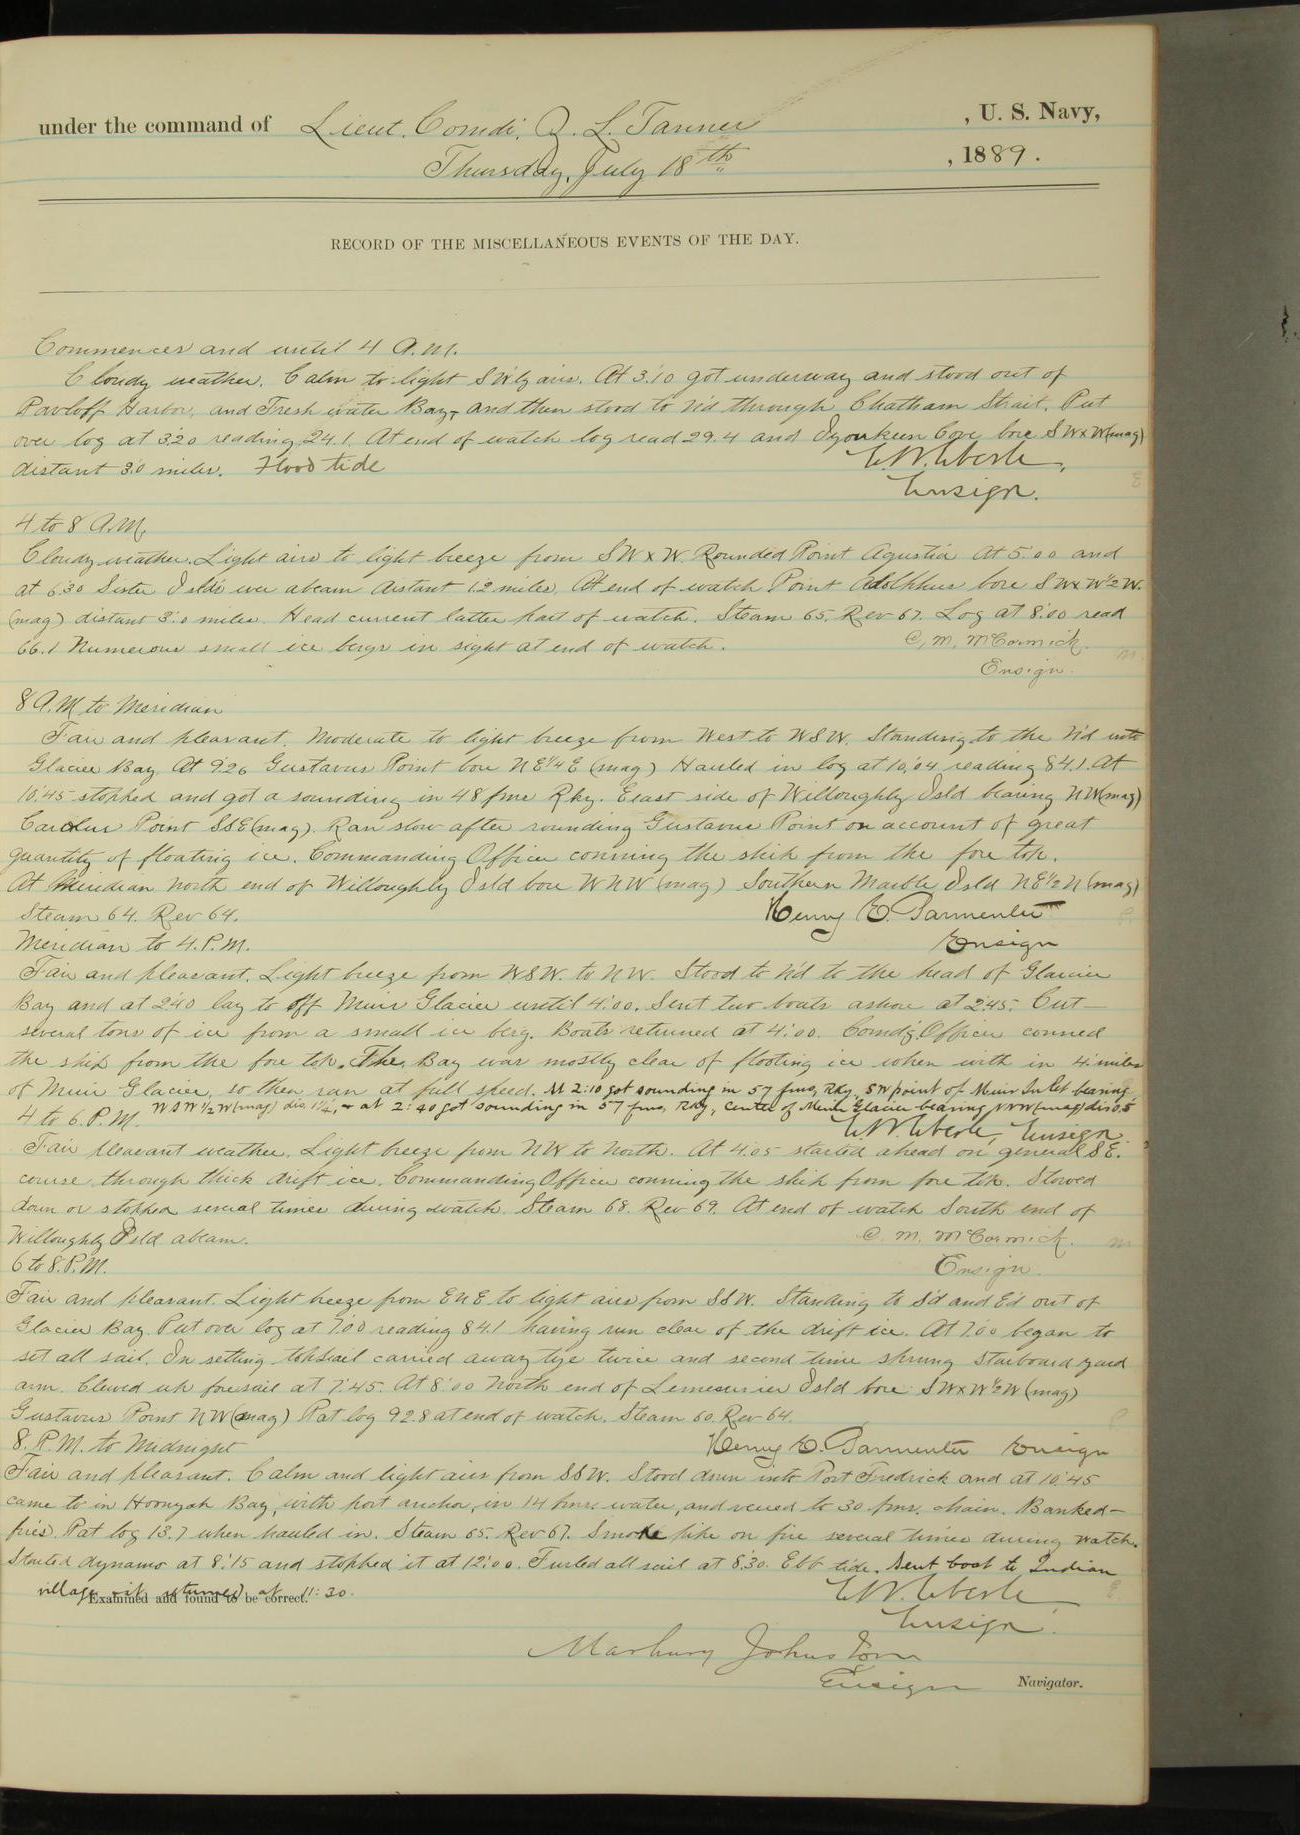 under the command of Lieut. Comdr. Z. L. Tanner , U. S. Navy,
Thursday, July 18th , 1889.
RECORD OF THE MISCELLANEOUS EVENTS OF THE DAY.
Commences and until 4 A.M.
Cloudy weather. Calm to light SW'ly airs. At 3:10 got underway and stood out of
Pavloff Harbor, and Fresh water Bay, and then stood to N'd through Chatham Strait. Put
over log at 3:20 reading 24.1. At end of watch log read 29.4 and Iyoukeen Cove bore SWxW(mag)
distant 3.0 miles. Flood tide E.W. Eberle,
Ensign.
4 to 8 A.M.
Cloudy weather. Light airs to light breeze from SWxW. Rounded Point Agustia At 5:00 and
at 6:30 Sister Islds were abeam distant 1.2 miles. At end of watch Point Adolphus bore SWxW½W.
(mag) distant 3.0 miles. Head current latter part of watch. Steam 65. Rev 67. Log at 8:00 read
66.1 Numerous small ice bergs in sight at end of watch. C. M. McCormick.
Ensign.
8 A.M to Meridian
Fair and pleasant. Moderate to light breeze from West to WSW. Standing to the N'd into
Glacier Bay At 9:26 Gustavus Point bore NE¼E (mag) Hauled in log at 10:04 reading 84.1. At
10:45 stopped and got a sounding in 48 fms Rky. Eeast side of Willoughby Isld bearing NW(mag)
Carolus Point SSE(mag). Ran slow after rounding Gustavus Point on account of great
quantity of floating ice. Commanding Officer conning the ship from the fore top.
At Meridian north end of Willoughby Isld bore WNW(mag) Southern Marble Isld NE½N(mag)
Steam 64. Rev 64. Henry E. Parmenter
Meridian to 4. P.M. Ensign
Fair and pleasant. Light breeze from WSW. to NW. Stood to N'd to the head of Glacier
Bay and at 2:40 lay to off Muir Glacier until 4:00. Sent two boats ashore at 2:45. Cut
several tons of ice from a small ice berg. Boats returned at 4:00. Comd'g. Officer conned
the ship from the fore top. The Bay was mostly clear of floating ice when with in 4 miles
of Muir Glacier, so then ran at full speed. At 2:10 got sounding in 57 fms, Rky, SW point of Muir Inlet bearing
WSW½W(mag) dis 1¼, & at 2:40 got sounding in 57 fms, Rky, center of Muir Glacier bearing NNW(mag) dis 0.5
4 to 6. P.M. E.W. Eberle, Ensign.
Fair pleasant weather. Light breeze from NW to North. At 4:05 started ahead on general SE.
course, through thick drift ice. Commanding Officer conning the ship from fore top. Slowed
down or stopped several times during watch. Steam 68. Rev 69. At end of watch South end of
Willoughby Isld abeam. C. M. McCormick.
6 to 8. P.M. Ensign.
Fair and pleasant. Light breeze from ENE to light airs from SSW. Standing to S'd and E'd out of
Glacier Bay. Put over log at 7:00 reading 84.1 having run clear of the drift ice. At 7:00 began to
set all sail. In setting topsail carried away tye twice and second time sprung starboard yard
arm. Clewed up foresail at 7:45. At 8:00 North end of Lemesurier Isld bore SWxW½W(mag)
Gustavus Point NW(mag) Pat log 92.8 at end of watch. Steam 60. Rev 64.
8. P.M. to Midnight Henry E. Parmenter Ensign
Fair and pleasant. Calm and light airs from SSW. Stood down into Port Fredrick and at 10:45
came to in Hoonyah Bay, with port anchor, in 14 fms. water, and veered to 30 fms. chain. Banked
fires. Pat log 13.7 when hauled in. Steam 65. Rev 67. Smoke pipe on fire several times during watch.
Started dynamo at 8:15 and stopped it at 12:00. Furled all sail at 8:30. Ebb tide. Sent boat to Indian
village, it returned at 11:30.
Examined and found to be correct. E.W. Eberle
Ensign.
Marbury Johnston
Ensign Navigator.